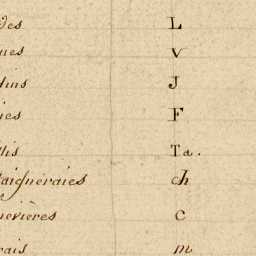 des L
ues V
dins J
ies F
llis Ta.
taigneraies ch
nevières c
rais m